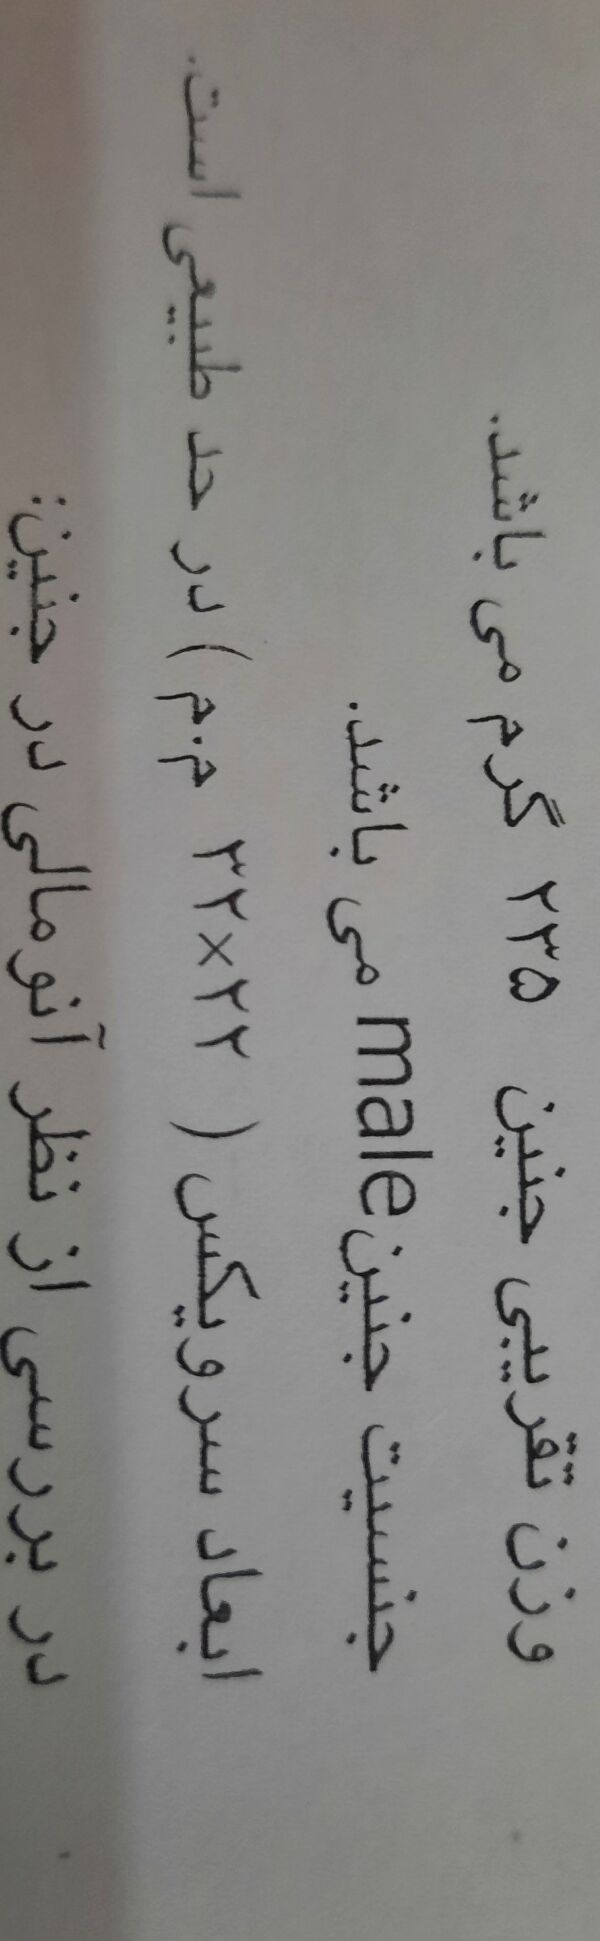 وزن تقریبی جنین ۲۳۵ گرم می باشد.
جنسیت جنین male می باشد.
ابعاد سرویکس ( ۲۲×۳۲ م.م) در حد طبیعی است.
در بررسی از نظر آنومالی در جنین: